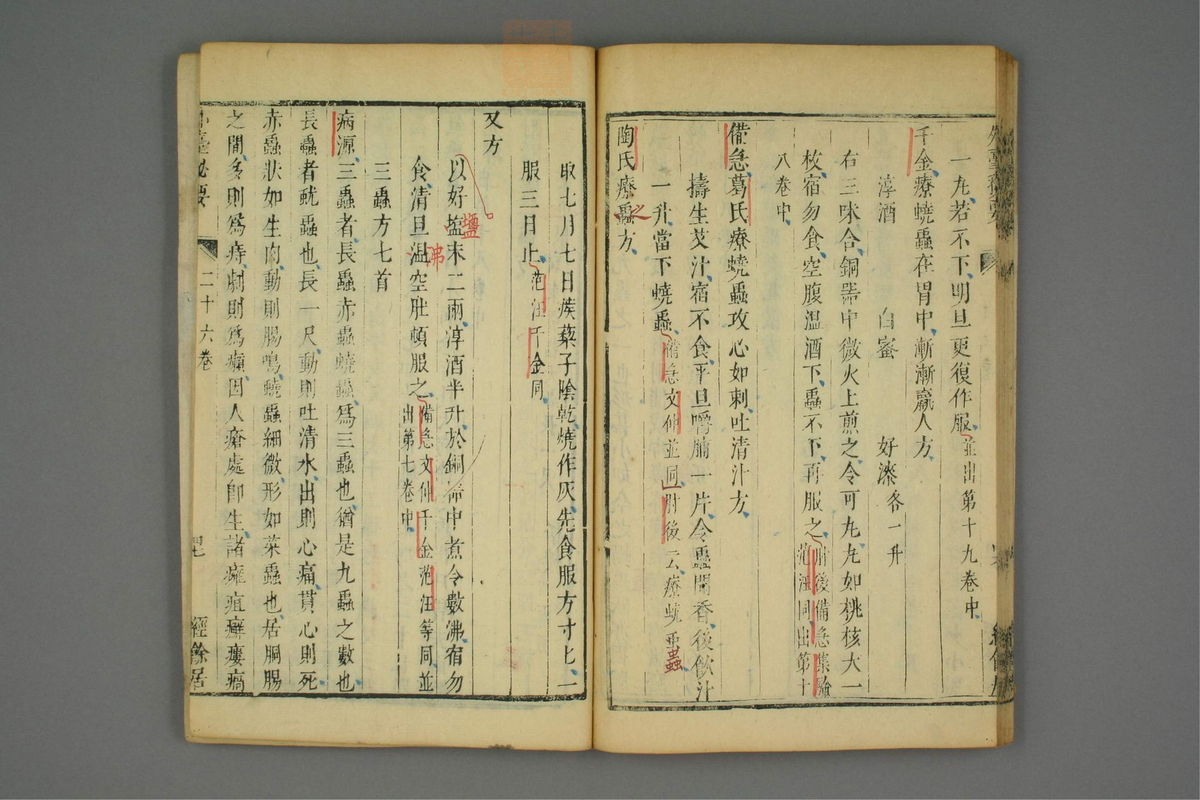 一丸若不下明旦更復作服並出第十九卷中
千金療蟯蟲在胃中漸漸羸人方
淳酒 白蜜 好漆各一升
右三味合銅器中微火上煎之令可丸丸如桃核大一
枚宿勿食空腹溫酒下蟲不下再服之肘後備急集驗
范汪同出第十
八卷中
備急葛氏療蟯蟲攻心如刺吐清汁方
擣生艾汁宿不食平旦嚼脯一片令蟲聞香後飲汁
一升當下蟯蟲備急文仲並同肘後云療蚘蟲
陶氏療蟲方
取七月七日蒺藜子陰乾燒作灰先食服方寸匕一
服三日止范汪千金同
又方
以好塩末二兩淳酒半升於銅器中煮令數沸宿勿
食清旦溫空肚頓服之備急文仲千金范汪等同並
出第七卷中
三蟲方七首
病源三蟲者長蟲赤蟲蟯蟲爲三蟲也猶是九蟲之數也
長蟲者蚘蟲也長一尺動則吐清水出則心痛貫心則死
赤蟲狀如生肉動則腸鳴蟯蟲細微形如菜蟲也居胴腸
之間多則爲痔劇則爲癩因人瘡處即生諸癰疽癬瘻瘑
外臺祕要 二十六卷 經餘居